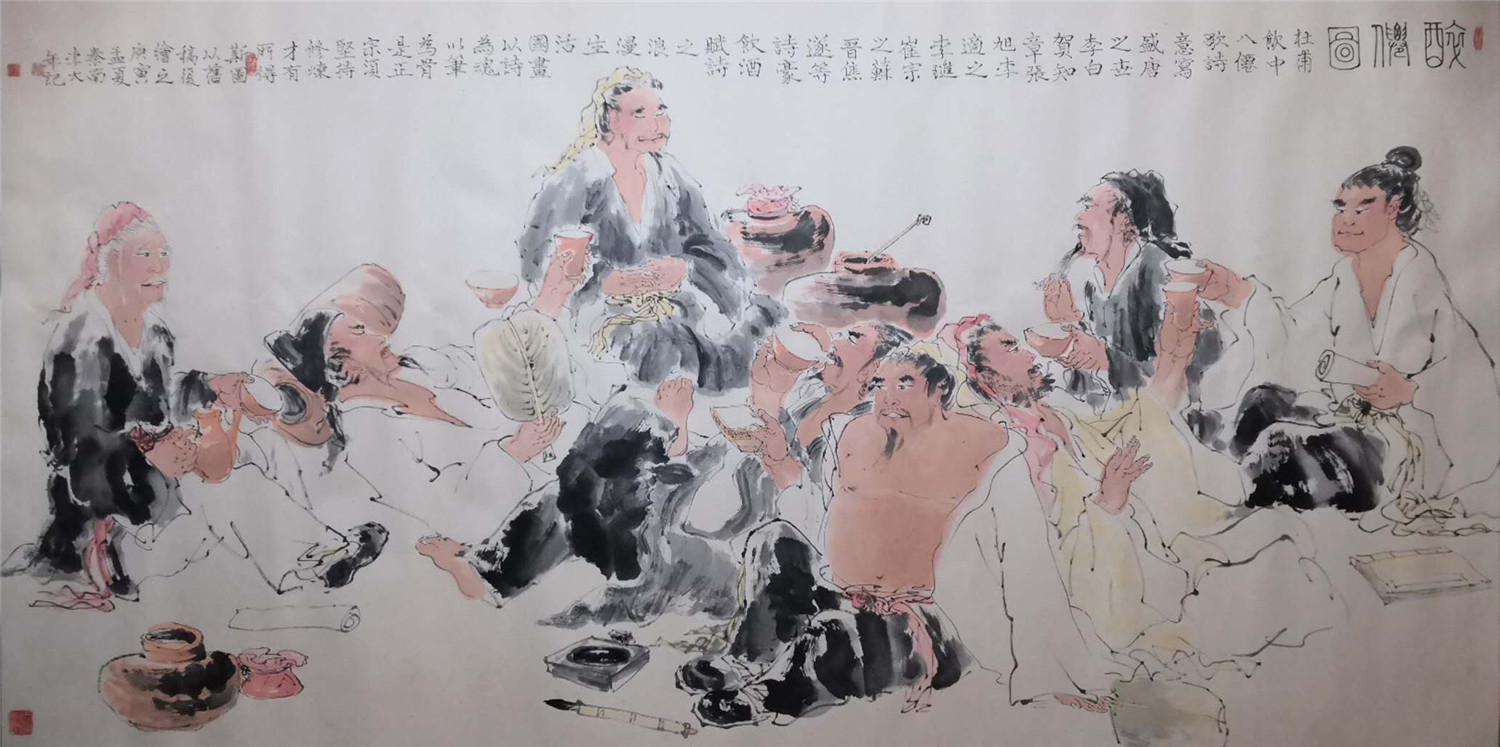 醉僊圖
杜甫
飲中
八僊
歌詩
意寫
盛唐
之世
李白
賀知
章張
旭李
適之
李璡
崔宗
之蘇
晋焦
遂等
詩豪
飲酒
賦詩
之
浪
漫
生
活
國畫
以詩
為魂
以筆
為骨
是正
宗須
堅持
修煉
才有
所得
斯圖
以舊
稿復
繪之
庚寅
孟夏
秦南
津大
年記